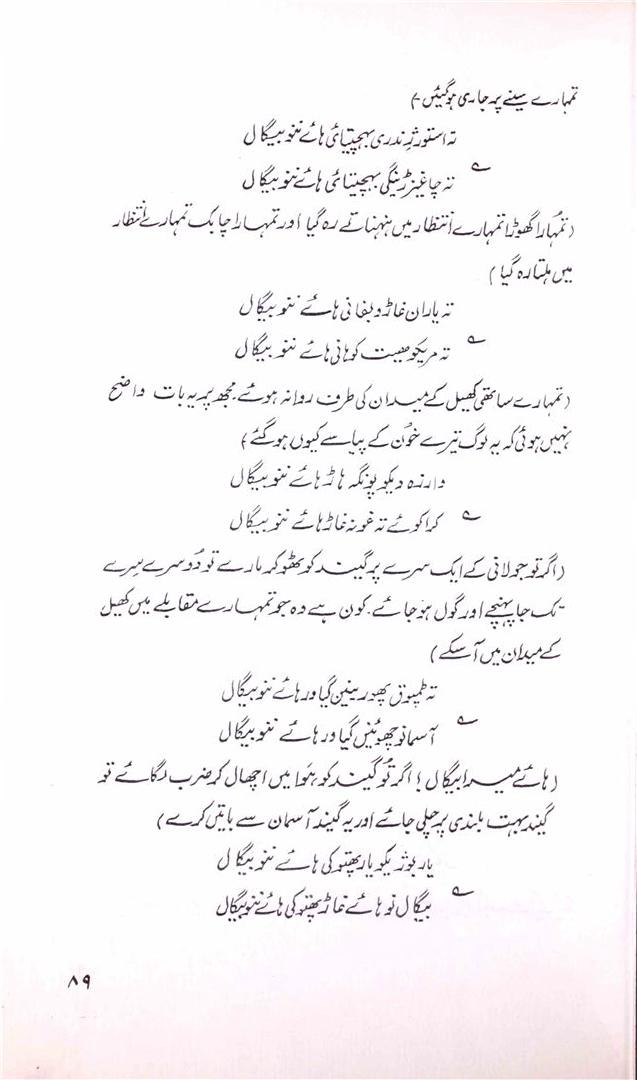 تمہارے سینے پر جاری ہوگیئں۔)
تہ استور ژِندری بہچیتائی ہائے ننو بیگال
تہ چاغیز ڑینگی بہچیتائی ہائے ننو بیگال
(تمہارا گھوڑا تمہارے انتظار میں ہنہناتے رہ گیا اور تمہارا چابک تمہارے انتظار
میں ہلتا رہ گیا)
تہ یاران غاڑ وبغانی ہائے ننو بیگال
تہ مریکو مصیبت کوہانی ہائے ننو بیگال
(تمہارے ساتھی کھیل کے میدان کی طرف روانہ ہوئے۔ مجھ پر یہ بات واضح
نہیں ہوئی کہ یہ لوگ تیرے خون کے پیاسے کیوں ہو گئے)
دارزہ دیکو پونگہ ہاڑ ہائے ننو بیگال
کرا کوئے تہ غونہ غاڑ ہائے ننو بیگال
(اگر تو جولانی کے ایک سرے پر گیند کو ٹھوکر مارے تو دُوسرے سِرے
تک جا پہنچے اور گول ہو جائے۔ کون ہے وہ جو تمہارے مقابلے میں کھیل
کے میدان میں آسکے)
تہ ٹمپوق پھور ینین گیاور ہائے ننو بیگال
آسمانو چھوئیں گیاور ہائے ننو بیگال
(ہائے میرا بیگال! اگر تُو گیند کو ہَوا میں اچھال کر ضرب لگائے تو
گیند بہت بلندی پر چلی جائے اور یہ گیند آسمان سے باتیں کرے)
یار بوژیکو یار پھتو کی ہائے ننو بیگال
بیگال نو ہائے غاڑ پھتو کی ہائے ننو بیگال
۸۹